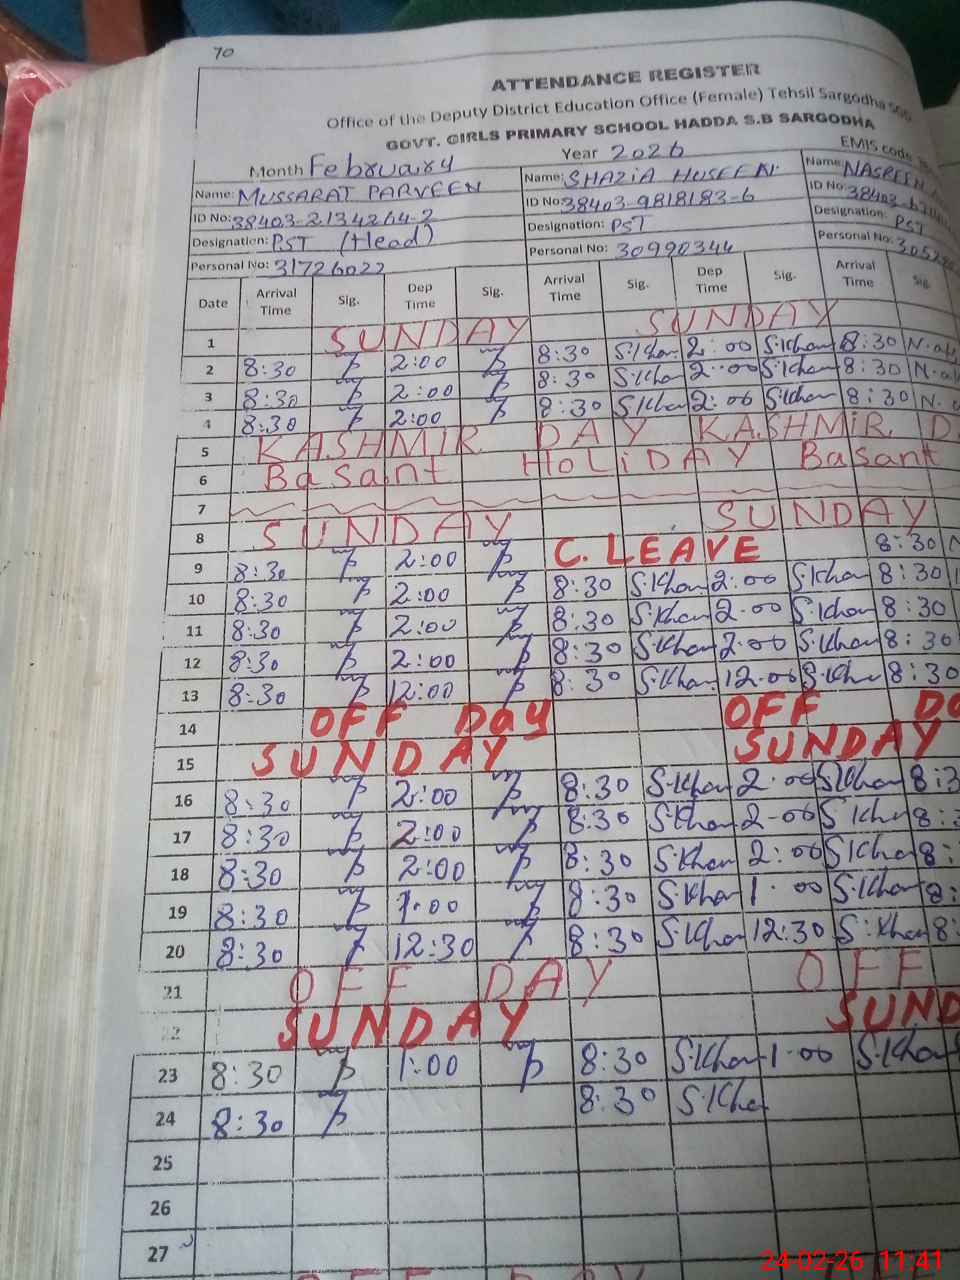 70
ATTENDANCE REGISTER
Office of the Deputy District Education Office (Female) Tehsil Sargodha
GOVT. GIRLS PRIMARY SCHOOL HADDA S.B SARGODHA
EMIS code
Month February Year 2026
Name: MUSSARAT PARVEEN Name: SHAZIA Name: NASREEN
ID No: 38403-2134264-2 ID No: 38403-9818183-6 ID No: 38403-
Designation: PST (Head) Designation: PST Designation: PST
Personal No: 31726022 Personal No: 30990344 Personal No:
Date Arrival Time Sig. Dep Time Sig. Arrival Time Sig. Dep Time Sig. Arrival Time Sig.
1 SUNDAY SUNDAY
2 8:30 2:00 8:30 S.Khan 2:00 S.Khan 8:30
3 8:30 2:00 8:30 S.Khan 2:00 S.Khan 8:30
4 8:30 2:00 8:30 S.Khan 2:00 S.Khan 8:30
5 KASHMIR DAY KASHMIR D
6 Basant HOLiDAY Basant
7
8 SUNDAY SUNDAY
9 8:30 2:00 C. LEAVE 8:30
10 8:30 2:00 8:30 S.Khan 2:00 S.Khan 8:30
11 8:30 2:00 8:30 S.Khan 2:00 S.Khan 8:30
12 8:30 2:00 8:30 S.Khan 2:00 S.Khan 8:30
13 8:30 12:00 8:30 S.Khan 12:00 S.Khan 8:30
14 OFF Day OFF
15 SUNDAY SUNDAY
16 8:30 2:00 8:30 S.Khan 2:00 S.Khan
17 8:30 2:00 8:30 S.Khan 2:00 S.Khan
18 8:30 2:00 8:30 S.Khan 2:00 S.Khan
19 8:30 1:00 8:30 S.Khan 1:00 S.Khan
20 8:30 12:30 8:30 S.Khan 12:30 S.Khan
21 OFF DAY OFF
22 SUNDAY SUND
23 8:30 1:00 8:30 S.Khan 1:00 S.Khan
24 8:30 8:30 S.Kha
25
26
27
24-02-26 11:41